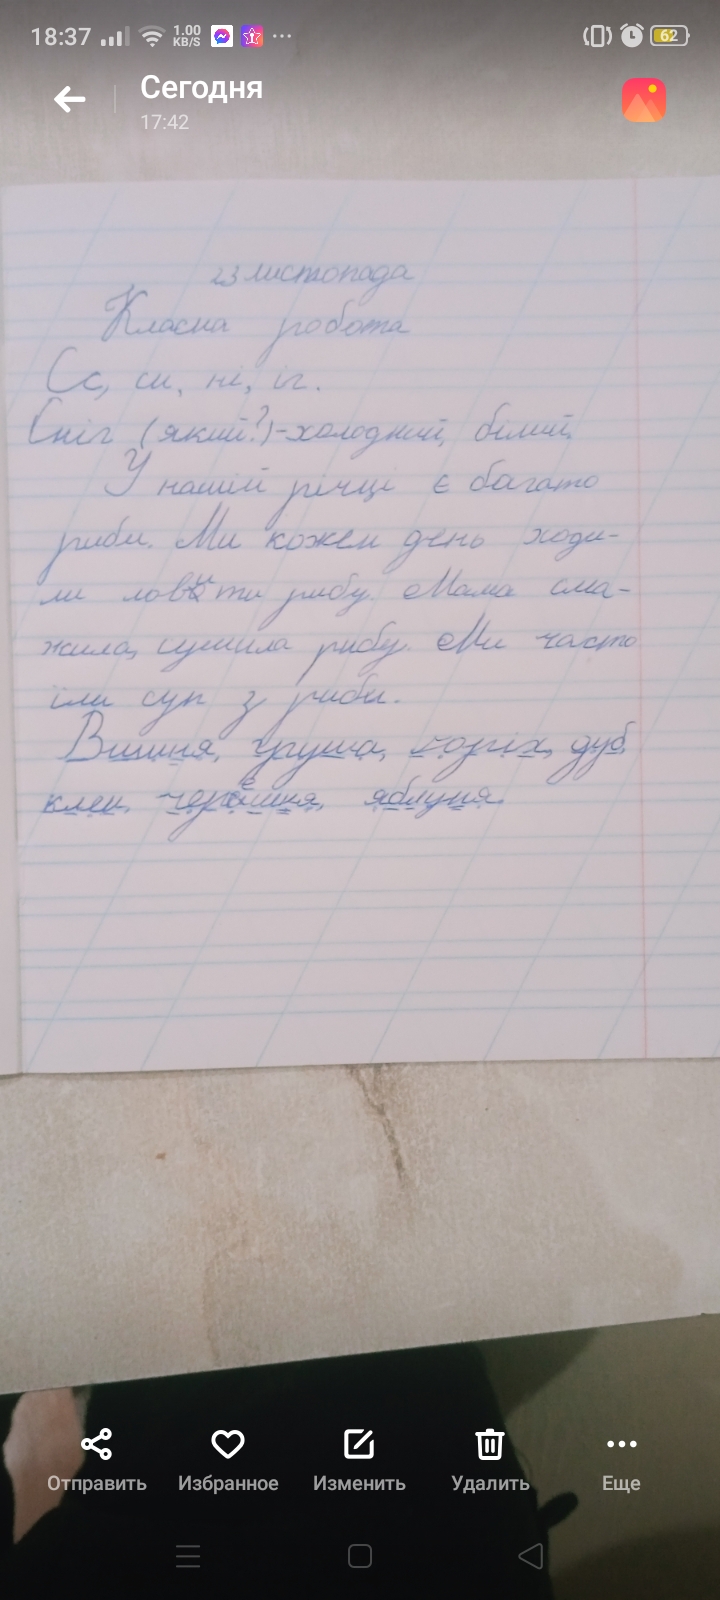 18:37 1.00 KB/S 62
Сегодня
17:42
23 листопада
Класна робота
Сс, сн, ні, іг.
Сніг (який?)-холодний, білий.
У нашій річці є багато
риби. Ми кожен день ходи-
ли ловити рибу. Мама сма-
жила, сушила рибу. Ми часто
їли суп з риби.
Вишня, груша, горіх, дуб,
клен, черешня, яблуня.
Отправить Избранное Изменить Удалить Еще